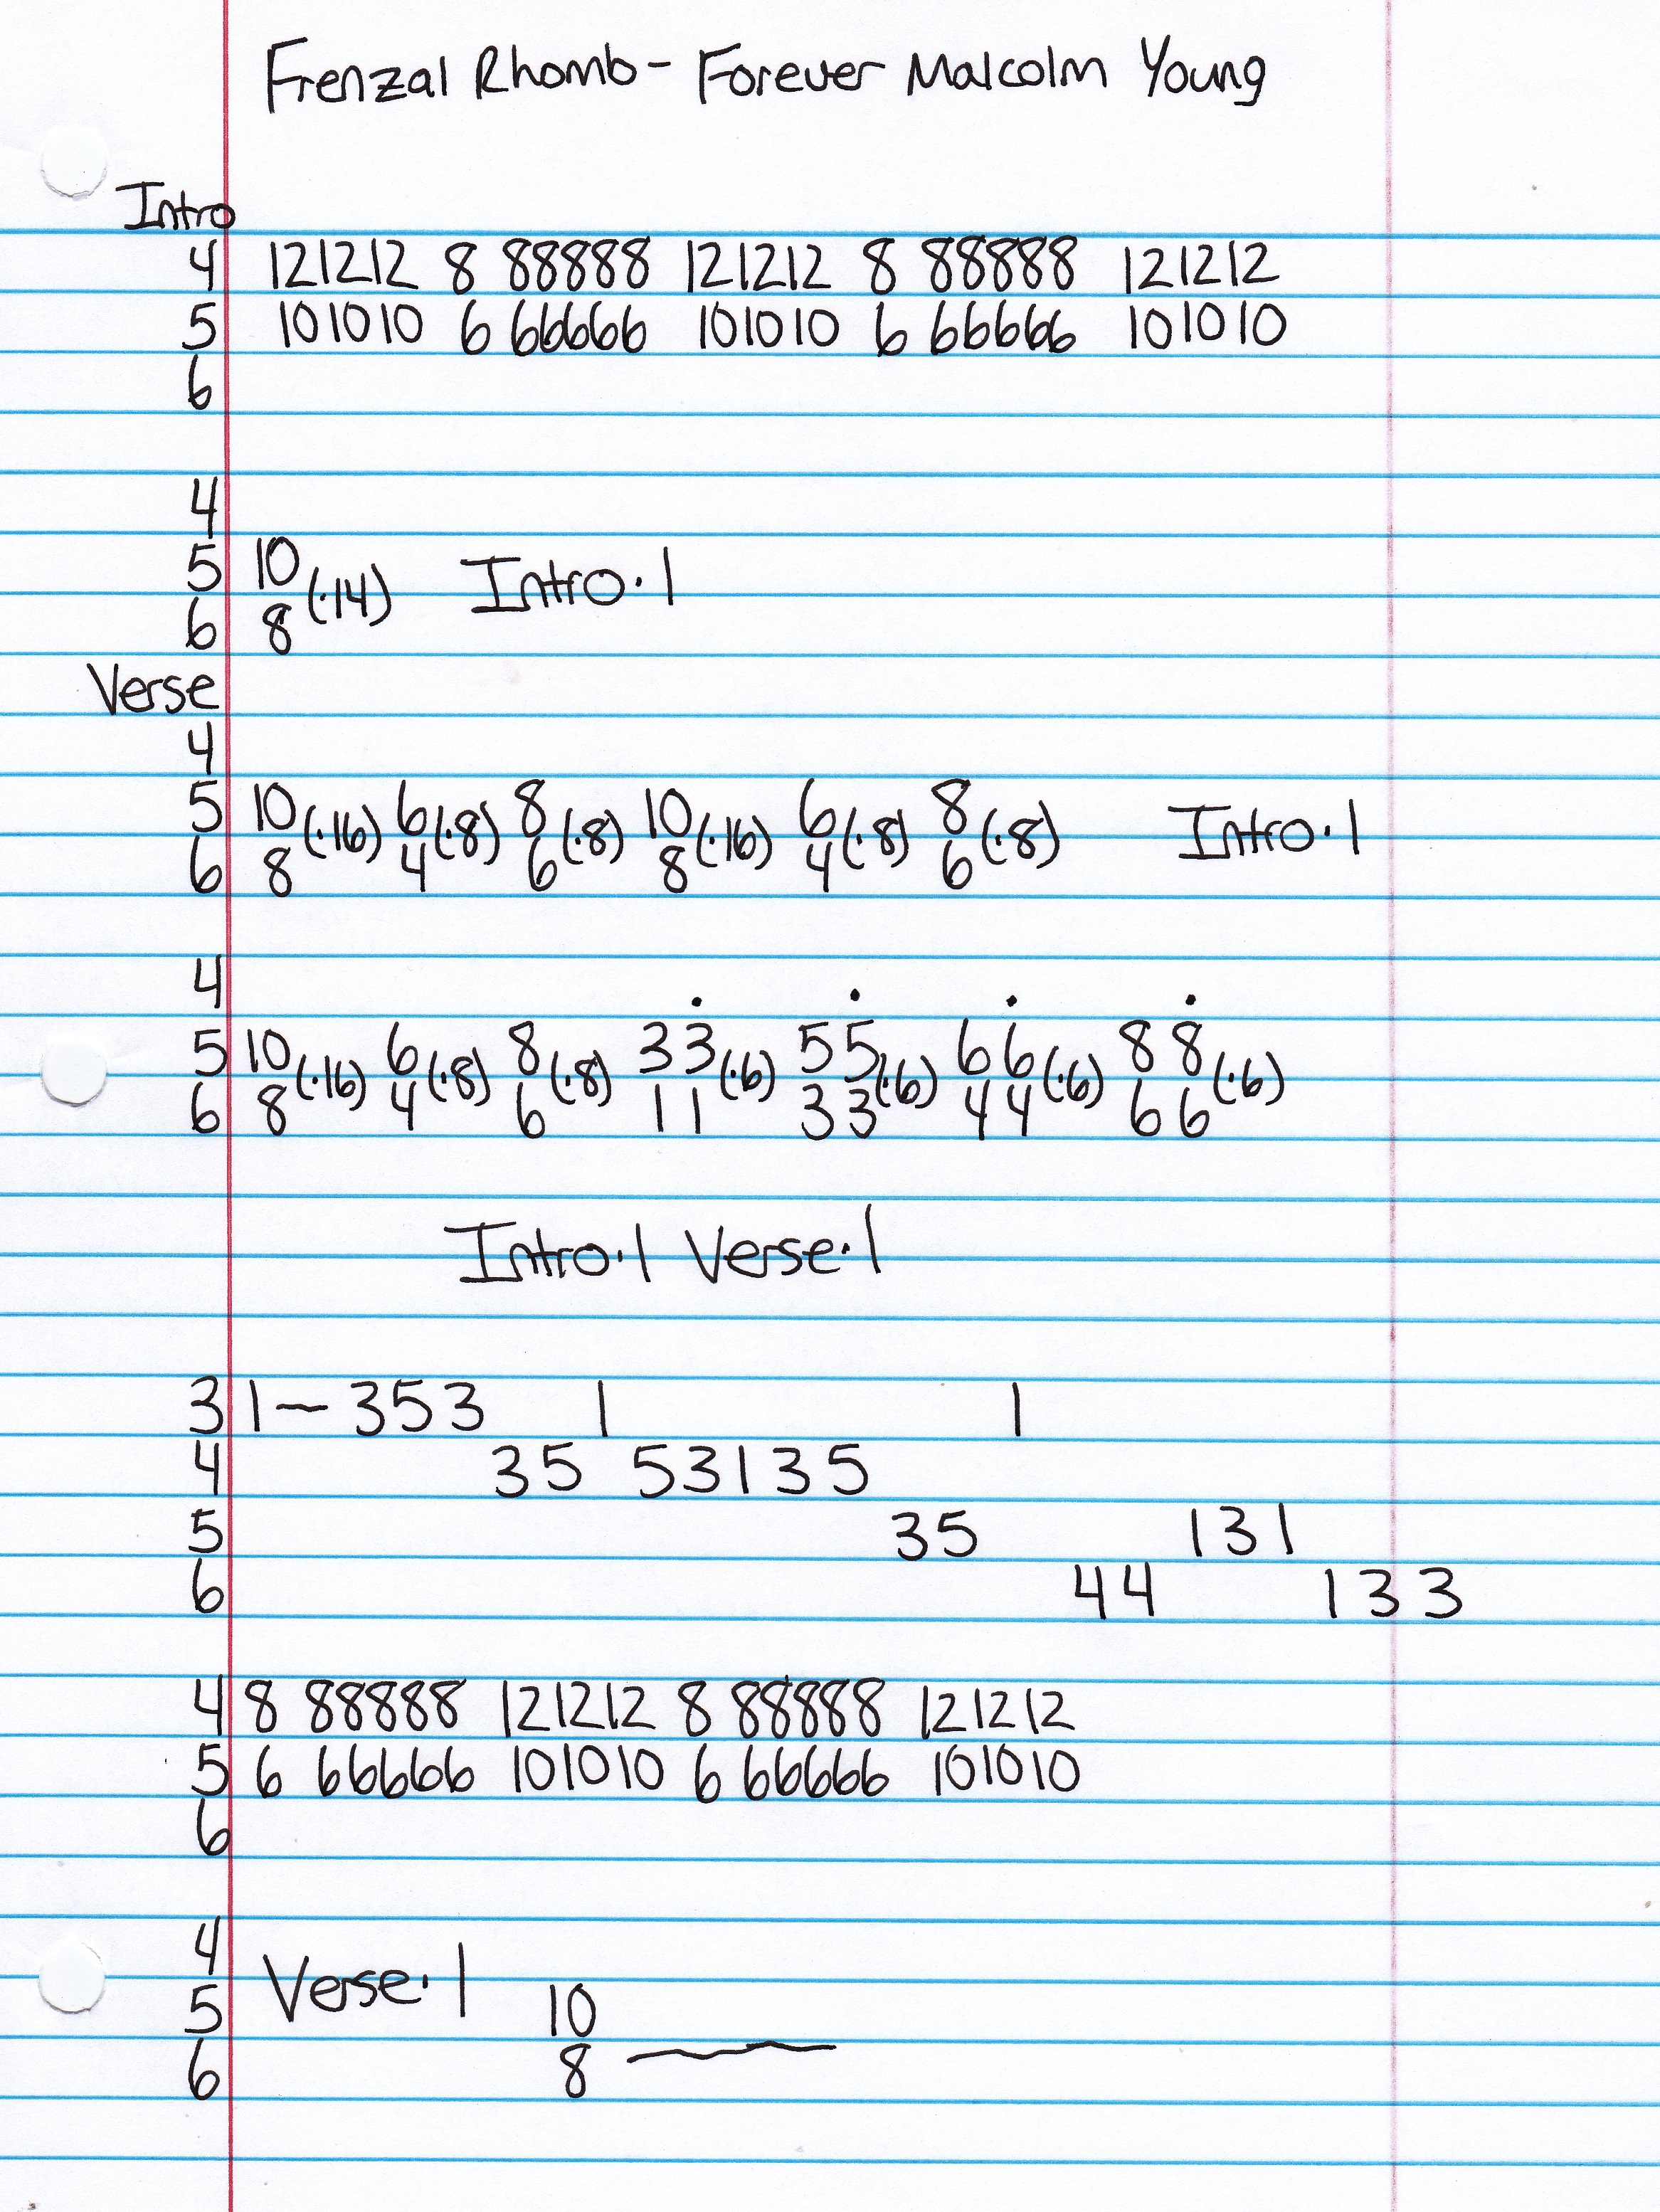 Frenzal Rhomb - Forever Malcolm Young
Intro
4 121212 8 88888 121212 8 88888 121212
5 101010 6 66666 101010 6 66666 101010
6
4
5 10
6 8 (·14) Intro·1
Verse
4
5 10 6 8 10 6 8
6 8 (·16) 4 (·8) 6 (·8) 8 (·16) 4 (·8) 6 (·8) Intro·1
4
5 10 6 8 3 3 5 5 6 6 8 8
6 8 (·16) 4 (·8) 6 (·8) 1 1 (·6) 3 3 (·6) 4 4 (·6) 6 6 (·6)
Intro·1 Verse·1
3 1 ~ 3 5 3 1 1
4 3 5 5 3 1 3 5
5 3 5 1 3 1
6 4 4 1 3 3
4 8 88888 121212 8 88888 121212
5 6 66666 101010 6 66666 101010
6
4
5 Verse·1 10
6 8